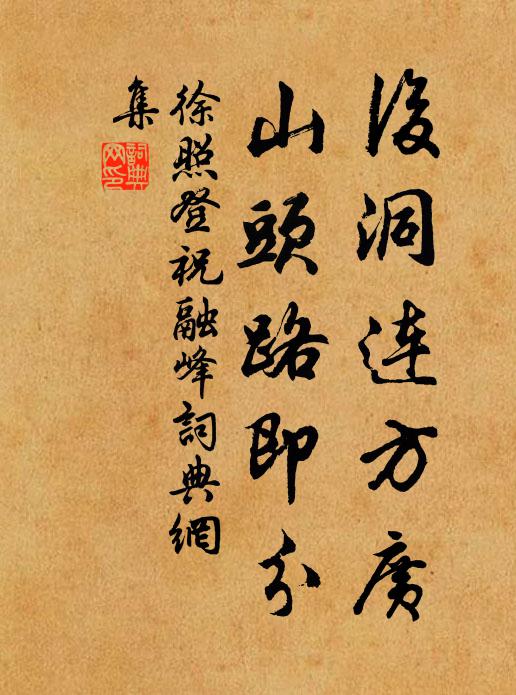 後洞連方廣
山頭路即分
徐照登祝融峰詞典網
集
詞典網印